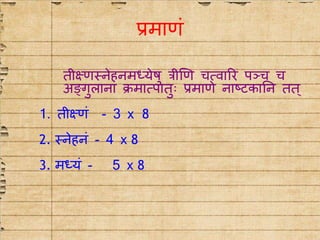 प्रमाणं
तीक्ष्णस्नेहनमध्येषु त्रीणि चत्वारि पञ्च च
अङ्गुलानां क्रमात्पातुः प्रमाणे नाष्टकानि तत्
1. तीक्ष्णं - 3 x 8
2. स्नेहनं - 4 x 8
3. मध्यं - 5 x 8